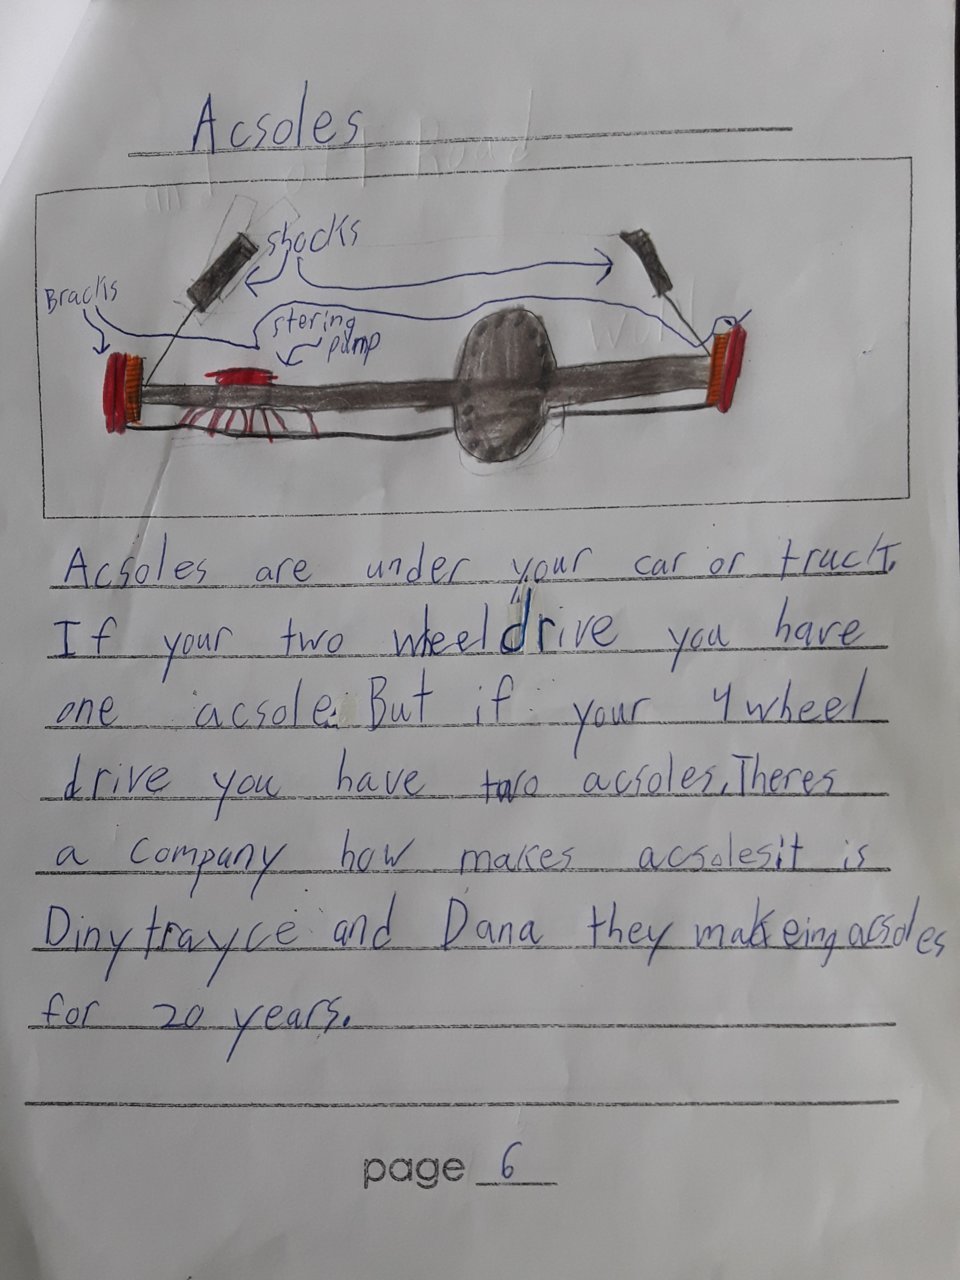 Acsoles
shocks
Bracks
stering
pump
Acsoles are under your car or truck.
If your two wheel drive you have
one acsole. But if your 4 wheel
drive you have two acsoles. Theres
a company how makes acsoles it is
Dinytrayce and Dana they makeing acsoles
for 20 years.
page 6